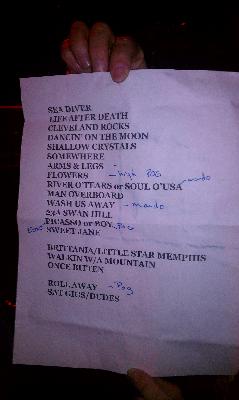 SEA DIVER
LIFE AFTER DEATH
CLEVELAND ROCKS
DANCIN' ON THE MOON
SHALLOW CRYSTALS
SOMEWHERE
ARMS & LEGS -
FLOWERS - high POG
RIVER O'TEARS or SOUL O'USA - mando
MAN OVERBOARD
WASH US AWAY - mando
23A SWAN HILL
PICASSO or BOY
SWEET JANE
BRITTANIA/LITTLE STAR MEMPHIS
WALKIN W/A MOUNTAIN
ONCE BITTEN
ROLLAWAY - Pog
SAT GIGS/DUDES